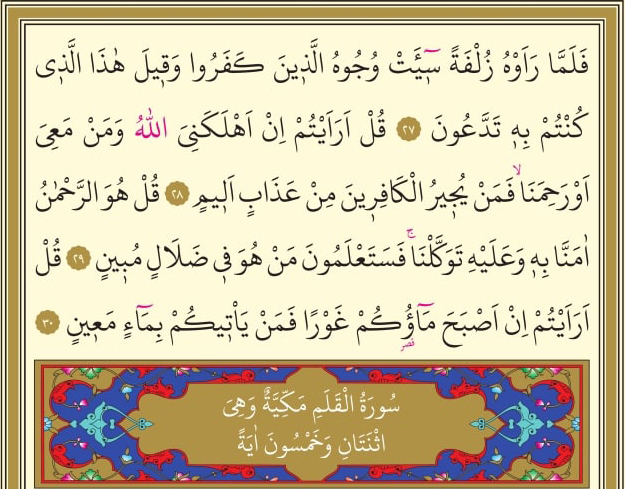 فَلَمَّا رَاَوْهُ زُلْفَةً سٓيـَٔتْ وُجُوهُ الَّذٖينَ كَفَرُوا وَقٖيلَ هٰذَا الَّذٖى
كُنْتُمْ بِهٖ تَدَّعُونَ ﴿٢٧﴾ قُلْ اَرَاَيْتُمْ اِنْ اَهْلَكَنِىَ اللّٰهُ وَمَنْ مَعِىَ
اَوْ رَحِمَنَاۙ فَمَنْ يُجٖيرُ الْكَافِرٖينَ مِنْ عَذَابٍ اَلٖيمٍ ﴿٢٨﴾ قُلْ هُوَ الرَّحْمٰنُ
اٰمَنَّا بِهٖ وَعَلَيْهِ تَوَكَّلْنَاۚ فَسَتَعْلَمُونَ مَنْ هُوَ فٖى ضَلَالٍ مُبٖينٍ ﴿٢٩﴾ قُلْ
اَرَاَيْتُمْ اِنْ اَصْبَحَ مَٓاؤُ۬كُمْ غَوْرًا فَمَنْ يَاْتٖيكُمْ بِمَٓاءٍ مَعٖينٍ ﴿٣٠﴾
قصر
سُورَةُ الْقَلَمِ مَكِّيَّةٌ وَهِىَ
اثْنَتَانِ وَخَمْسُونَ اٰيَةً